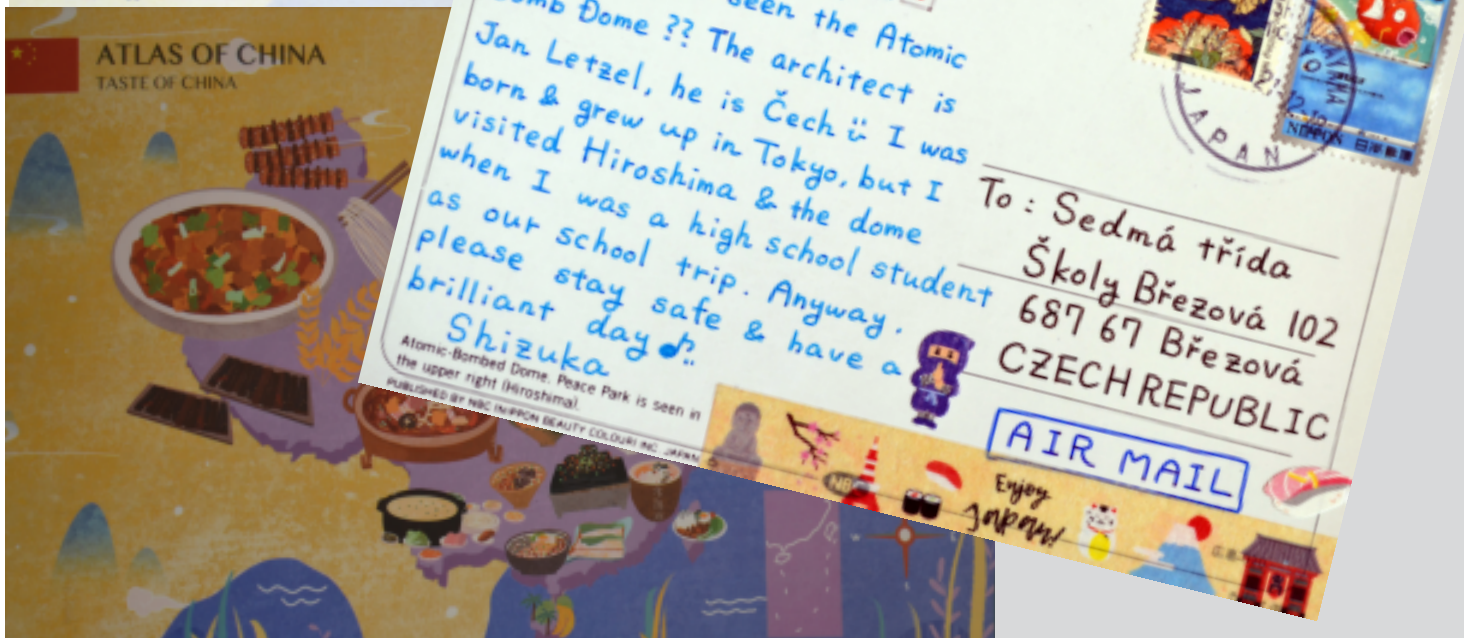 ATLAS OF CHINA
TASTE OF CHINA
seen the Atomic
Bomb Dome ?? The architect is
Jan Letzel, he is Čech I was
born & grew up in Tokyo, but I
visited Hiroshima & the dome
when I was a high school student
as our school trip. Anyway.
please stay safe & have a
brilliant day
Shizuka
Atomic-Bombed Dome. Peace Park is seen in
the upper right (Hiroshima).
PUBLISHED BY NBC (NIPPON BEAUTY COLOUR) INC. JAPAN
NIPPON 日本郵便
JAPAN
To : Sedmá třída
Školy Březová 102
687 67 Březová
CZECH REPUBLIC
AIR MAIL
NB
Enjoy
Japan!